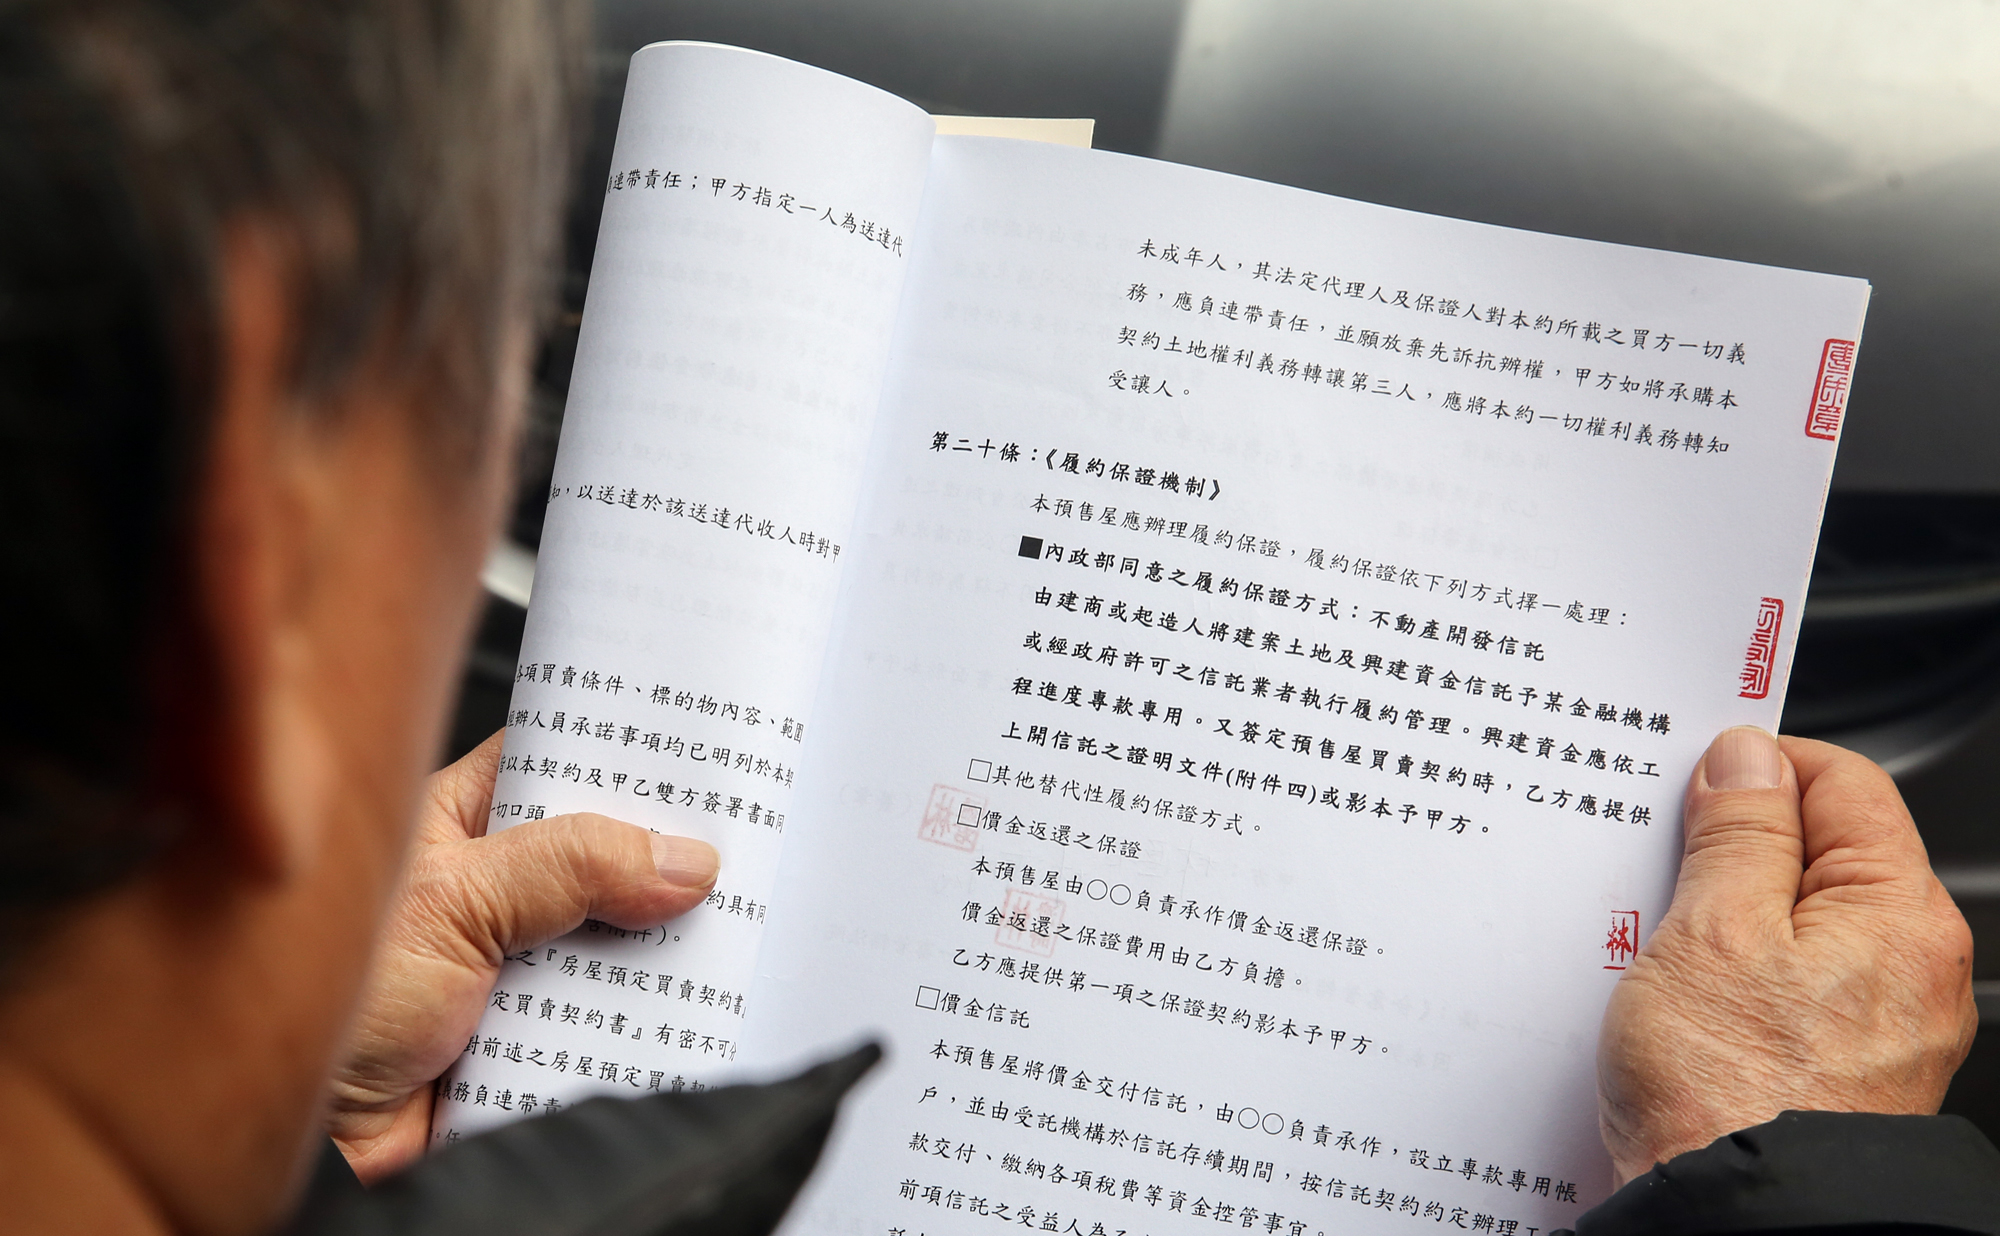 連帶責任；甲方指定一人為送達代
知，以送達於該送達代收人時對甲
各項買賣條件、標的物內容、範圍
辦人員承諾事項均已明列於本契
以本契約及甲乙雙方簽署書面同
一切口頭
約具有同
)。
之『房屋預定買賣契約書
定買賣契約書』有密不可分
對前述之房屋預定買賣契
義務負連帶責
任
未成年人，其法定代理人及保證人對本約所載之買方一切義
務，應負連帶責任，並願放棄先訴抗辯權，甲方如將承購本
契約土地權利義務轉讓第三人，應將本約一切權利義務轉知
受讓人。
第二十條：《履約保證機制》
本預售屋應辦理履約保證，履約保證依下列方式擇一處理：
■內政部同意之履約保證方式：不動產開發信託
由建商或起造人將建案土地及興建資金信託予某金融機構
或經政府許可之信託業者執行履約管理。興建資金應依工
程進度專款專用。又簽定預售屋買賣契約時，乙方應提供
上開信託之證明文件(附件四)或影本予甲方。
□其他替代性履約保證方式。
□價金返還之保證
本預售屋由○○負責承作價金返還保證。
價金返還之保證費用由乙方負擔。
乙方應提供第一項之保證契約影本予甲方。
□價金信託
本預售屋將價金交付信託，由○○負責承作，設立專款專用帳
戶，並由受託機構於信託存續期間，按信託契約約定辦理工
款交付、繳納各項稅費等資金控管事宜。
前項信託之受益人為乙
林